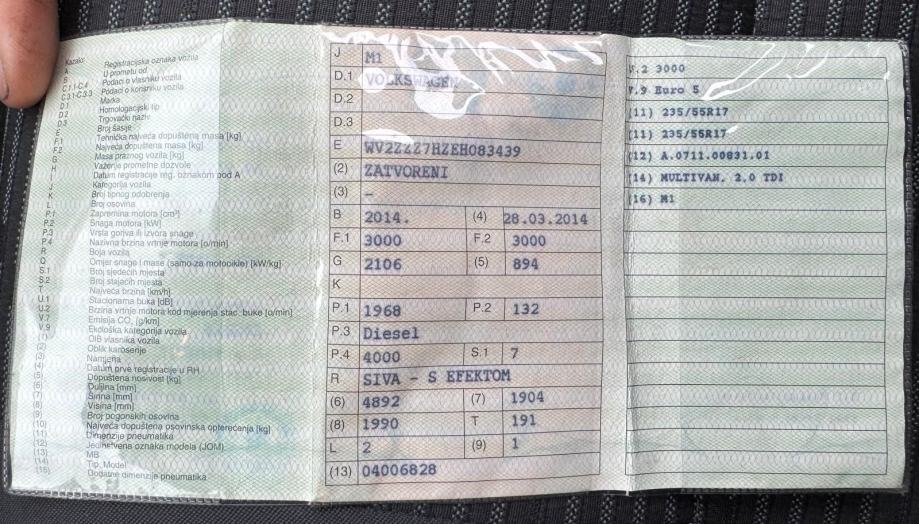 Kazalo:
A Registracijska oznaka vozila
B U prometu od
C.1.1-C.4 Podaci o vlasniku vozila
C.3.1-C.3.3 Podaci o korisniku vozila
D.1 Marka
D.2 Homologacijski tip
D.3 Trgovački naziv
E Broj šasije
F.1 Tehnička najveća dopuštena masa [kg]
F.2 Najveća dopuštena masa [kg]
G Masa praznog vozila [kg]
H Važenje prometne dozvole
I Datum registracije reg. oznakom pod A
J Kategorija vozila
K Broj tipnog odobrenja
L Broj osovina
P.1 Zapremina motora [cm³]
P.2 Snaga motora [kW]
P.3 Vrsta goriva ili izvora snage
P.4 Nazivna brzina vrtnje motora [o/min]
R Boja vozila
Q Omjer snage i mase (samo za motocikle) [kW/kg]
S.1 Broj sjedećih mjesta
S.2 Broj stajaćih mjesta
T Najveća brzina [km/h]
U.1 Stacionarna buka [dB]
U.2 Brzina vrtnje motora kod mjerenja stac. buke [o/min]
V.7 Emisija CO₂ [g/km]
V.9 Ekološka kategorija vozila
(1) OIB vlasnika vozila
(2) Oblik karoserije
(3) Namjena
(4) Datum prve registracije u RH
(5) Dopuštena nosivost [kg]
(6) Duljina [mm]
(7) Širina [mm]
(8) Visina [mm]
(9) Broj pogonskih osovina
(10) Najveća dopuštena osovinska opterećenja [kg]
(11) Dimenzije pneumatika
(12) Jedinstvena oznaka modela (JOM)
(13) MB
(14) Tip, Model
(15) Dodatne dimenzije pneumatika
J M1
D.1 VOLKSWAGEN
D.2
D.3
E WV2ZZZ7HZEH083439
(2) ZATVORENI
(3) –
B 2014. (4) 28.03.2014
F.1 3000 F.2 3000
G 2106 (5) 894
K
P.1 1968 P.2 132
P.3 Diesel
P.4 4000 S.1 7
R SIVA - S EFEKTOM
(6) 4892 (7) 1904
(8) 1990 T 191
L 2 (9) 1
(13) 04006828
V.2 3000
V.9 Euro 5
(11) 235/55R17
(11) 235/55R17
(12) A.0711.00831.01
(14) MULTIVAN, 2.0 TDI
(16) M1